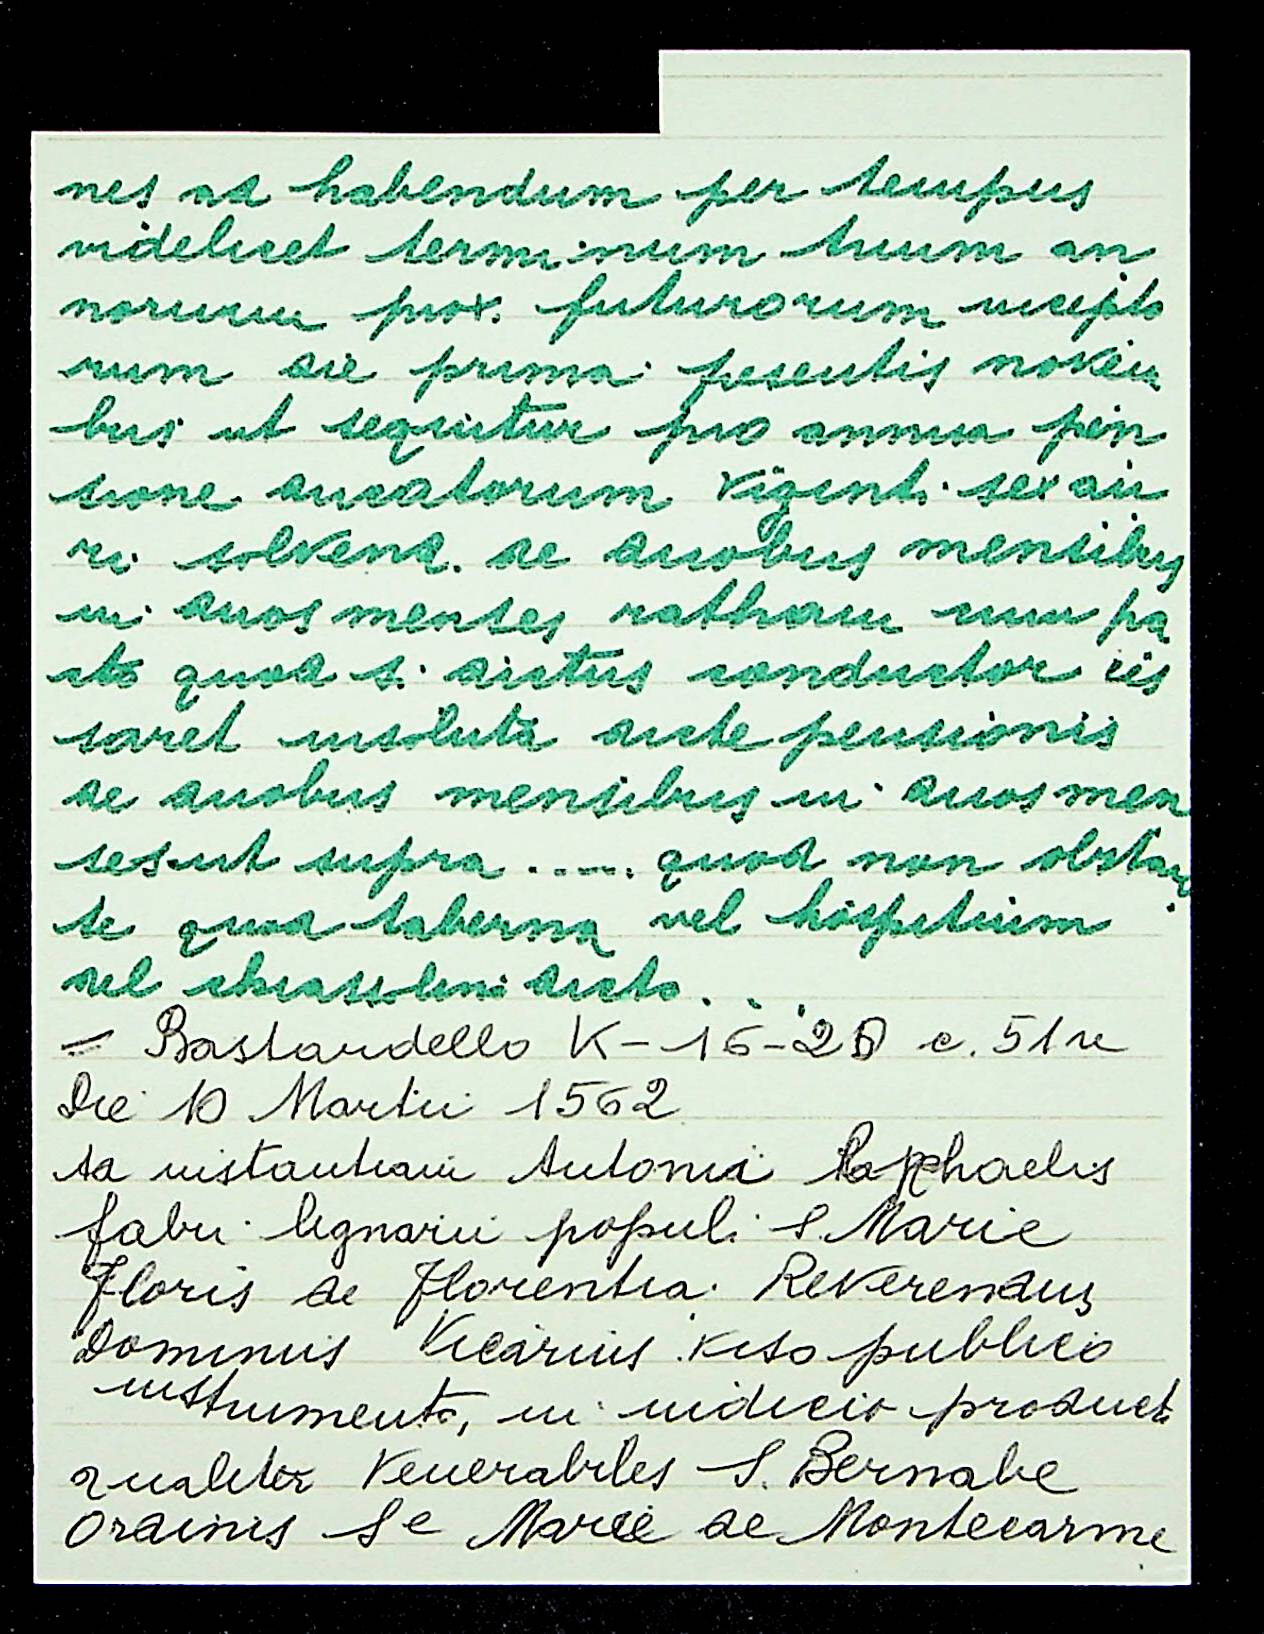 nes ad habendum per tempus
videlicet terminum trium an
norum prox. futurorum incepto
rum die prima presentis novem
bus ut sequitur pro annua pen
sione ducatorum viginti sex au
ri solvend. de duobus mensibus
in duos menses ratham cum pa
cto quod s. dictus conductor ces
saret insoluta dicte pensionis
de duobus mensibus in duos men
ses ut supra ..... quod non obstan
te quod taberna vel hospitium
vel chiassolini dicto . . .
= Bastardello K-16-20 c. 51 r
Die 10 Martii 1562
Ad instantiam Antonii Raphaelis
fabri lignarii populi S. Marie
Floris de Florentia Reverendus
Dominus Vicarius viso publico
instrumento, in iudicio product
qualiter Venerabiles S. Bernabe
Ordinis Se Marie de Montecarme